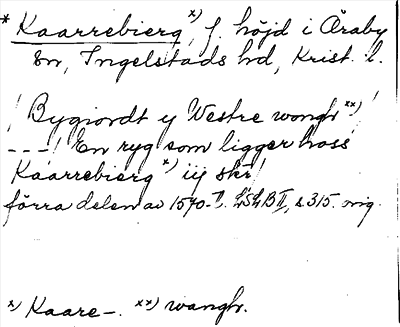 * Kaarrebierg x), f. höjd i Öraby
sn, Ingelstads hd, Krist. l.
! Bygiordt y Westre wongh xx) !
---! En ryg som ligger hoss
Kaarrebierg x) iij skr!
förra delen av 1570-t. LSLB II, s. 315. orig.
x) Kaare-. xx) wangh.